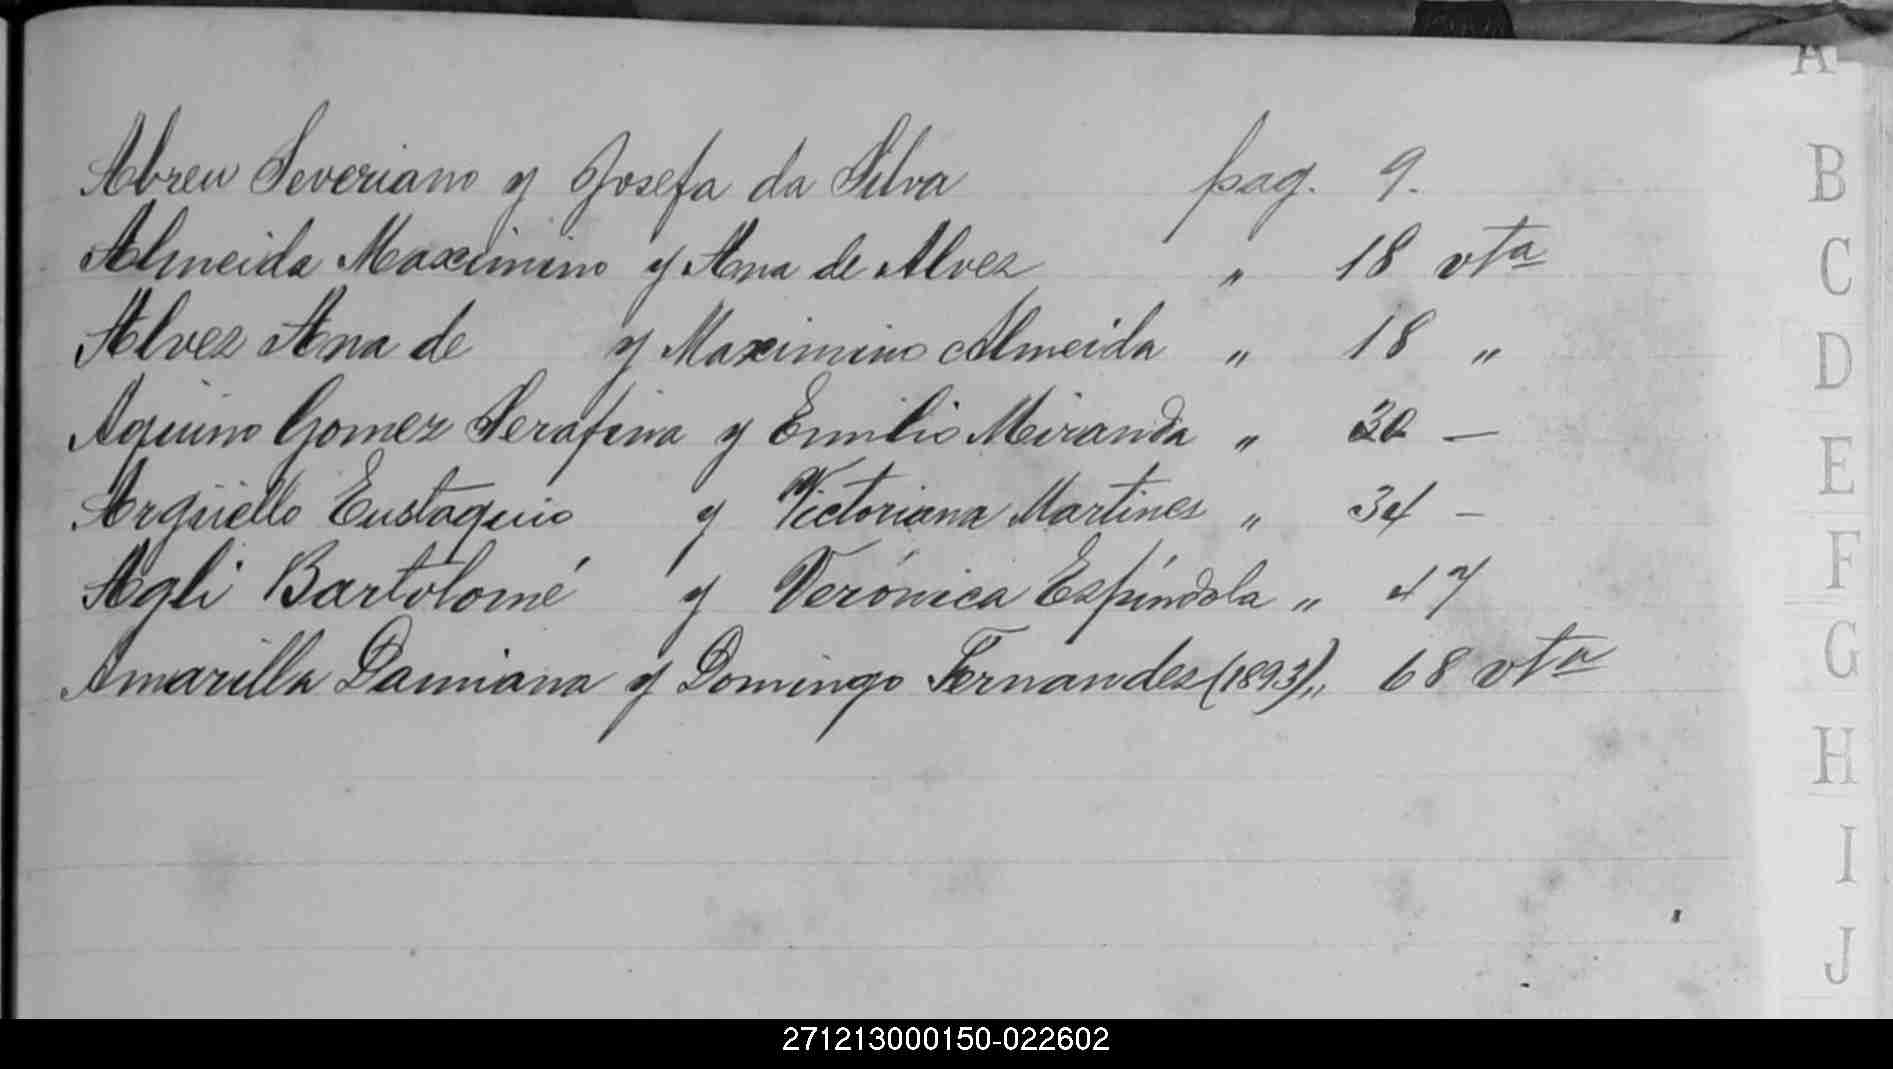 Abreu Severiano y Josefa da Silva pag. 9.
Almeida Maximino y Ana de Alvez " 18 vta
Alvez Ana de y Maximino Almeida " 18 "
Aquino Gomez Serafina y Emilio Miranda " 30 —
Argüello Eustaquio y Victoriana Martines " 34 –
Agli Bartolomé y Verónica Espíndola " 47
Amarilla Damiana y Domingo Fernandes (1893) " 68 vta
A
B
C
D
E
F
G
H
I
J
271213000150-022602